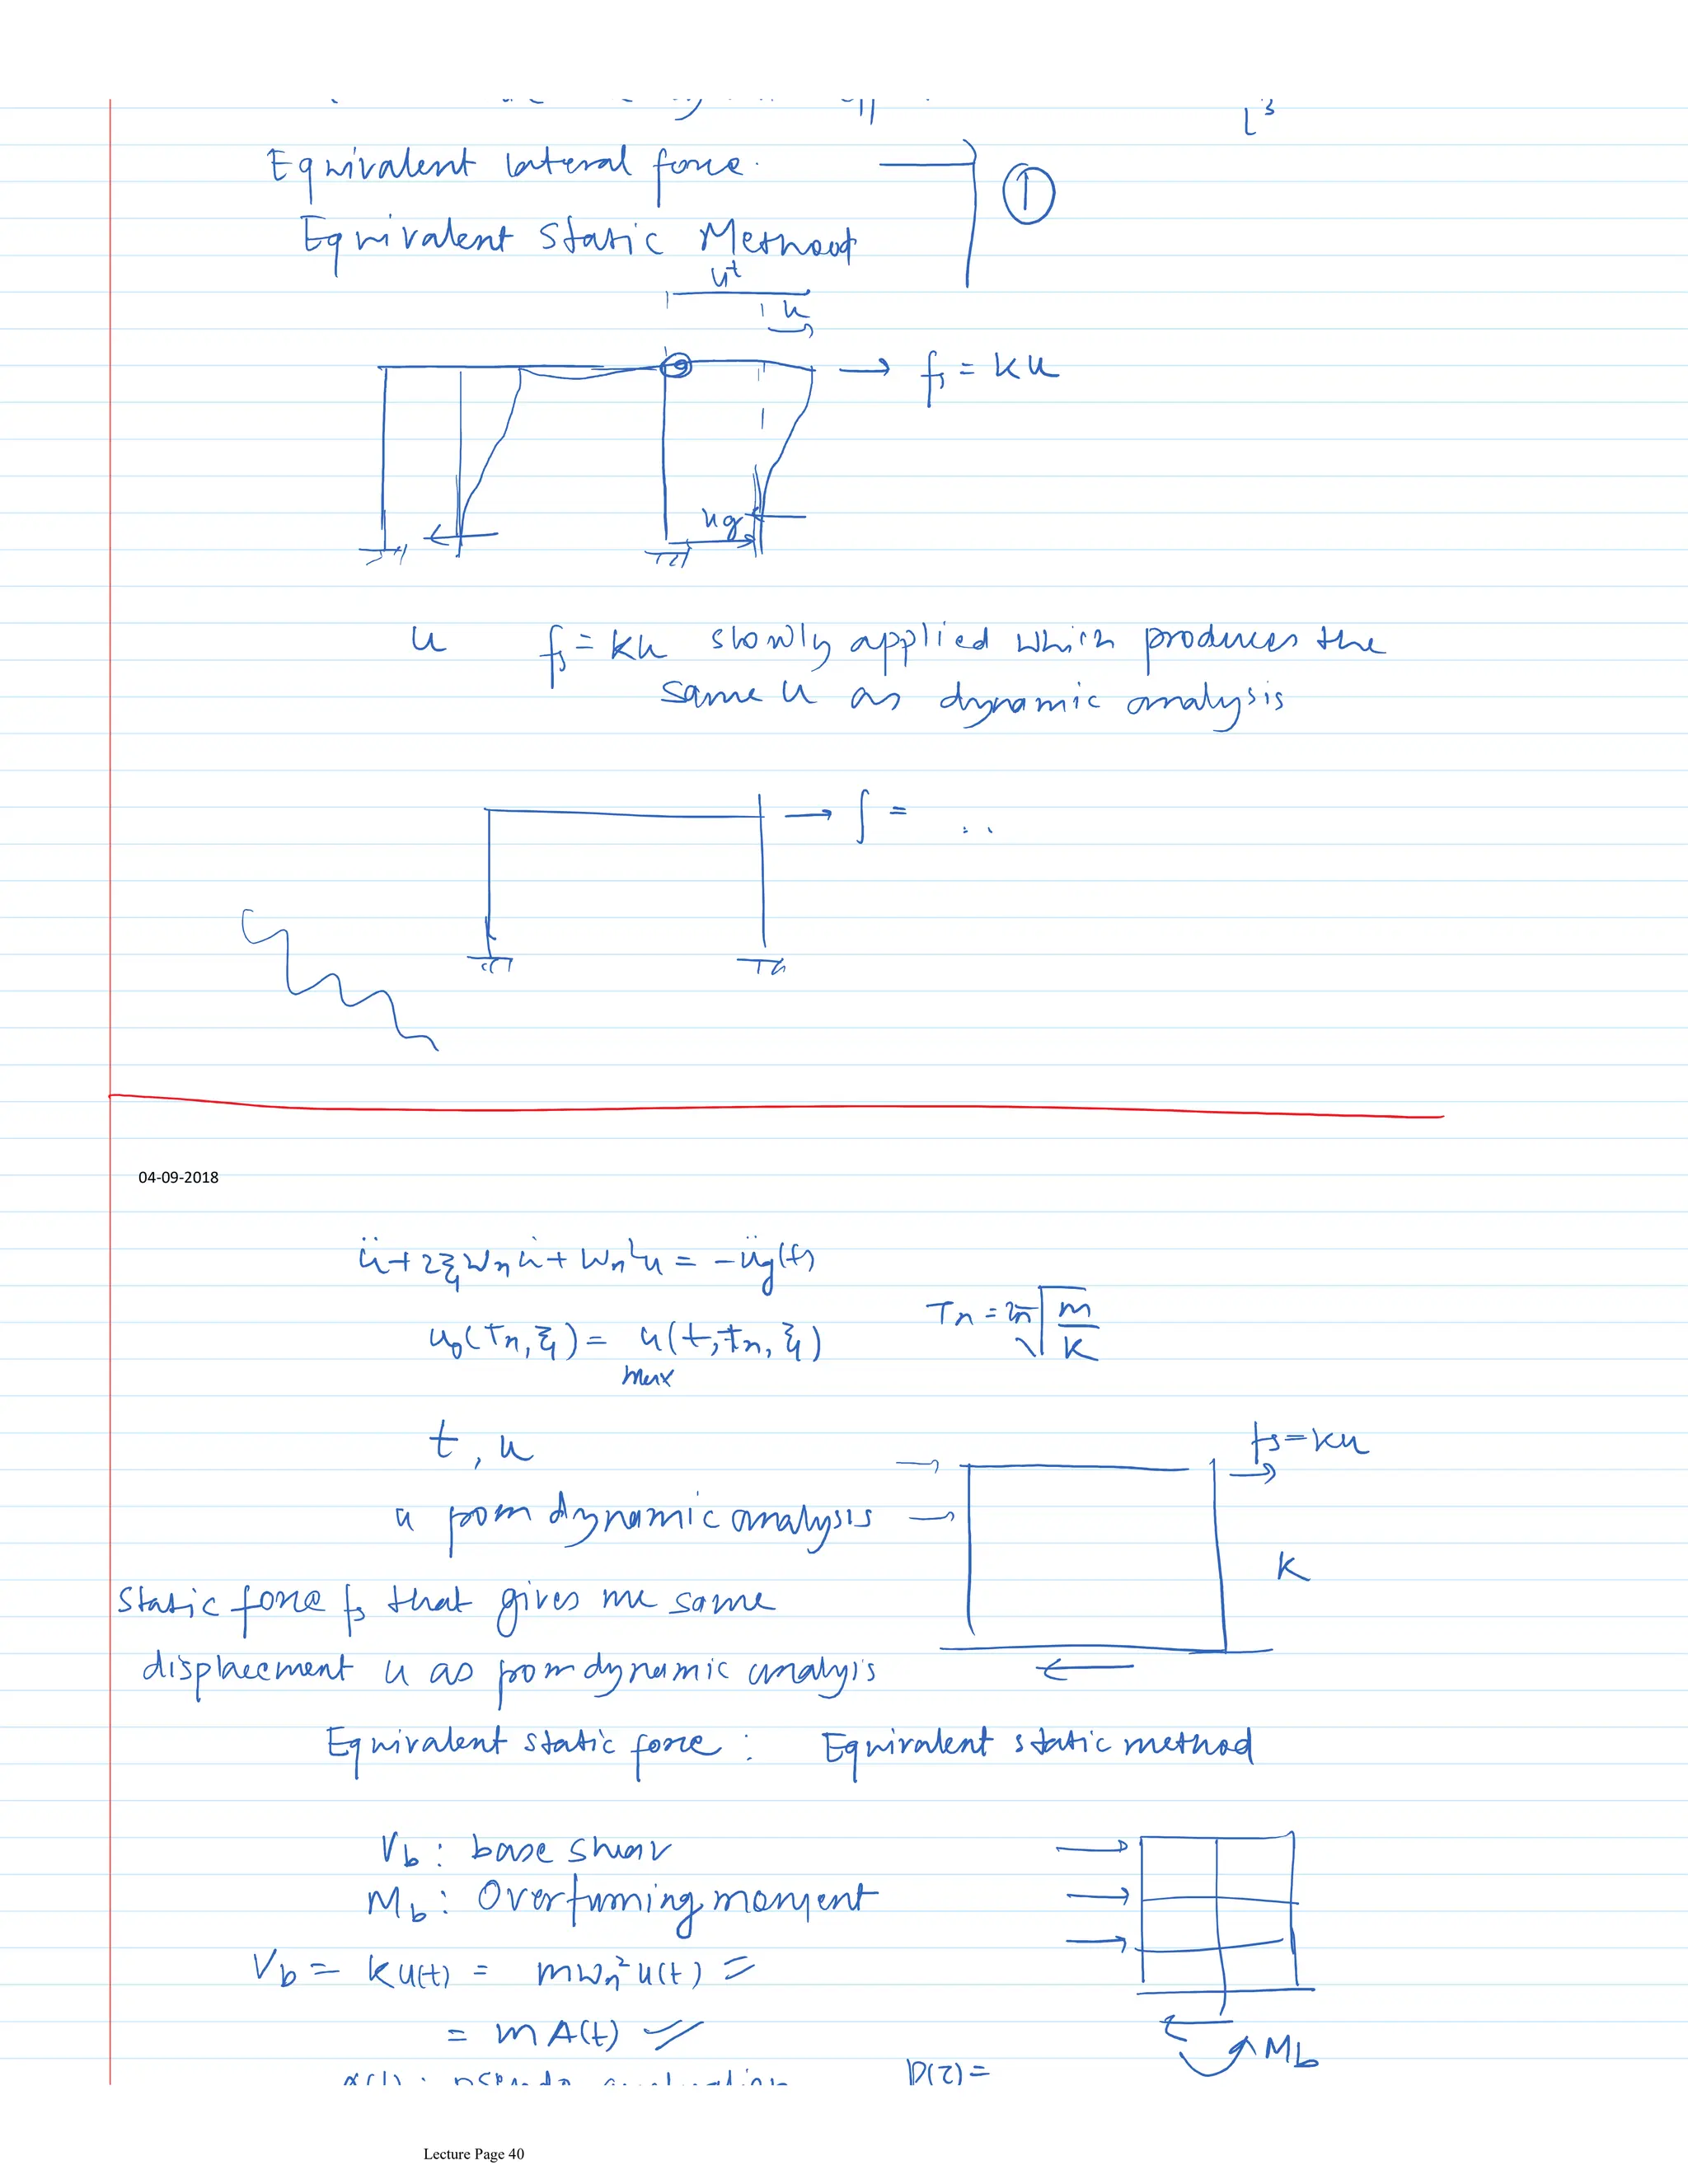 L³
Equivalent lateral force.
①
Equivalent Static Method
uᵗ
u
fs = ku
ug
u fs = ku slowly applied which produces the
same u as dynamic analysis
f = ..
04-09-2018
ü + 2ξωₙu̇ + ωₙ²u = -üg(t)
Tₙ = 2π√(m/k)
u₀(Tₙ, ξ) = u(t, Tₙ, ξ)
max
t, u
fs = ku
u from dynamic analysis
k
static force fs that gives me same
displacement u as from dynamic analyis
Equivalent static force : Equivalent static method
Vb : base shear
Mb : Overturning moment
Vb = ku(t) = mωₙ²u(t) =
= mA(t)
Mb
D(t) =
Lecture Page 40